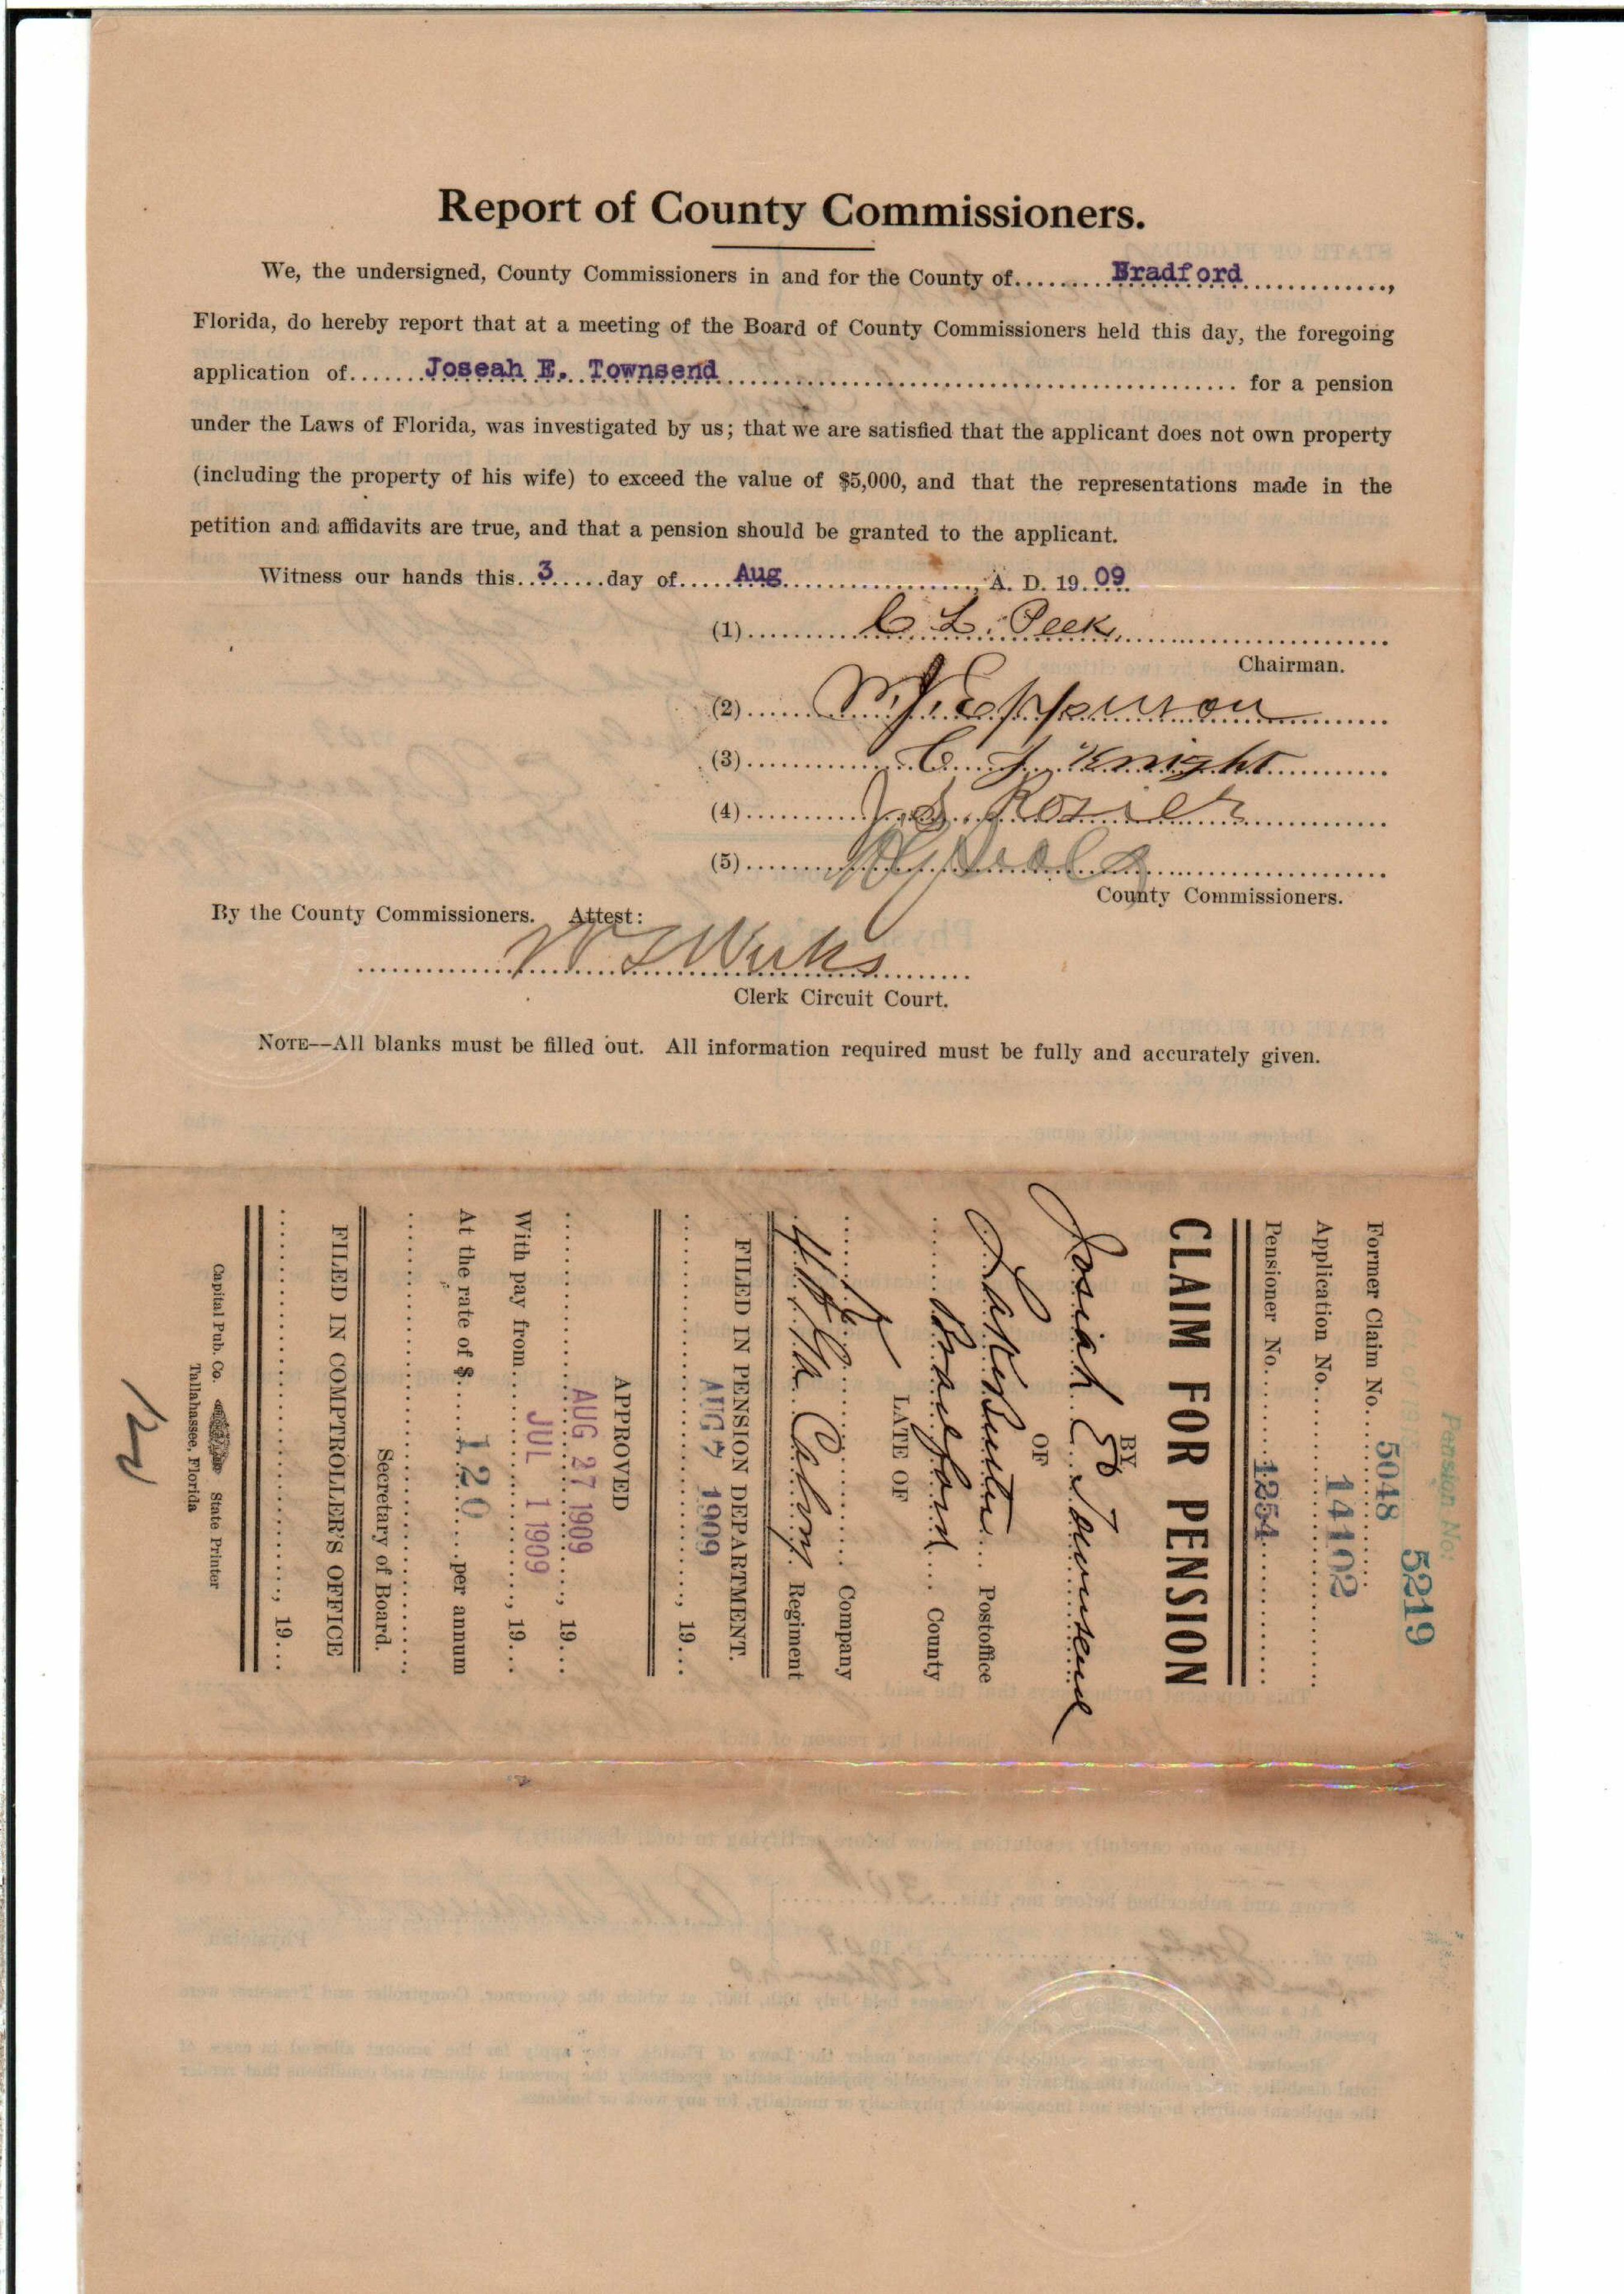 Report of County Commissioners.
We, the undersigned, County Commissioners in and for the County of.........Bradford.............,
Florida, do hereby report that at a meeting of the Board of County Commissioners held this day, the foregoing
application of.......Joseah E. Townsend................................................ for a pension
under the Laws of Florida, was investigated by us; that we are satisfied that the applicant does not own property
(including the property of his wife) to exceed the value of $5,000, and that the representations made in the
petition and affidavits are true, and that a pension should be granted to the applicant.
Witness our hands this..3.....day of.....Aug.................., A. D. 19.09.
(1)..........C L. Peek..........................
Chairman.
(2)......Epperson.........
(3)............C. J. Knight...........
(4)..........J. S. Rosier..............
(5)..........
County Commissioners.
By the County Commissioners. Attest:
Weeks.........
Clerk Circuit Court.
NOTE--All blanks must be filled out. All information required must be fully and accurately given.
Pension No:
5219
Former Claim No....5048..........
Application No.........14102..........
Pensioner No..........1254............
CLAIM FOR PENSION
BY
Josiah E Townsend
OF
.... Postoffice
.......Bradford.... County
LATE OF
................ Company
4th Ga. Calvry. Regiment
FILED IN PENSION DEPARTMENT.
AUG 7 1909 ........, 19....
APPROVED
AUG 27 1909 ......, 19....
With pay from....JUL 1 1909......, 19....
At the rate of $......120......per annum
Secretary of Board.
FILED IN COMPTROLLER'S OFFICE
......................................, 19....
Capital Pub. Co. State Printer
Tallahassee, Florida